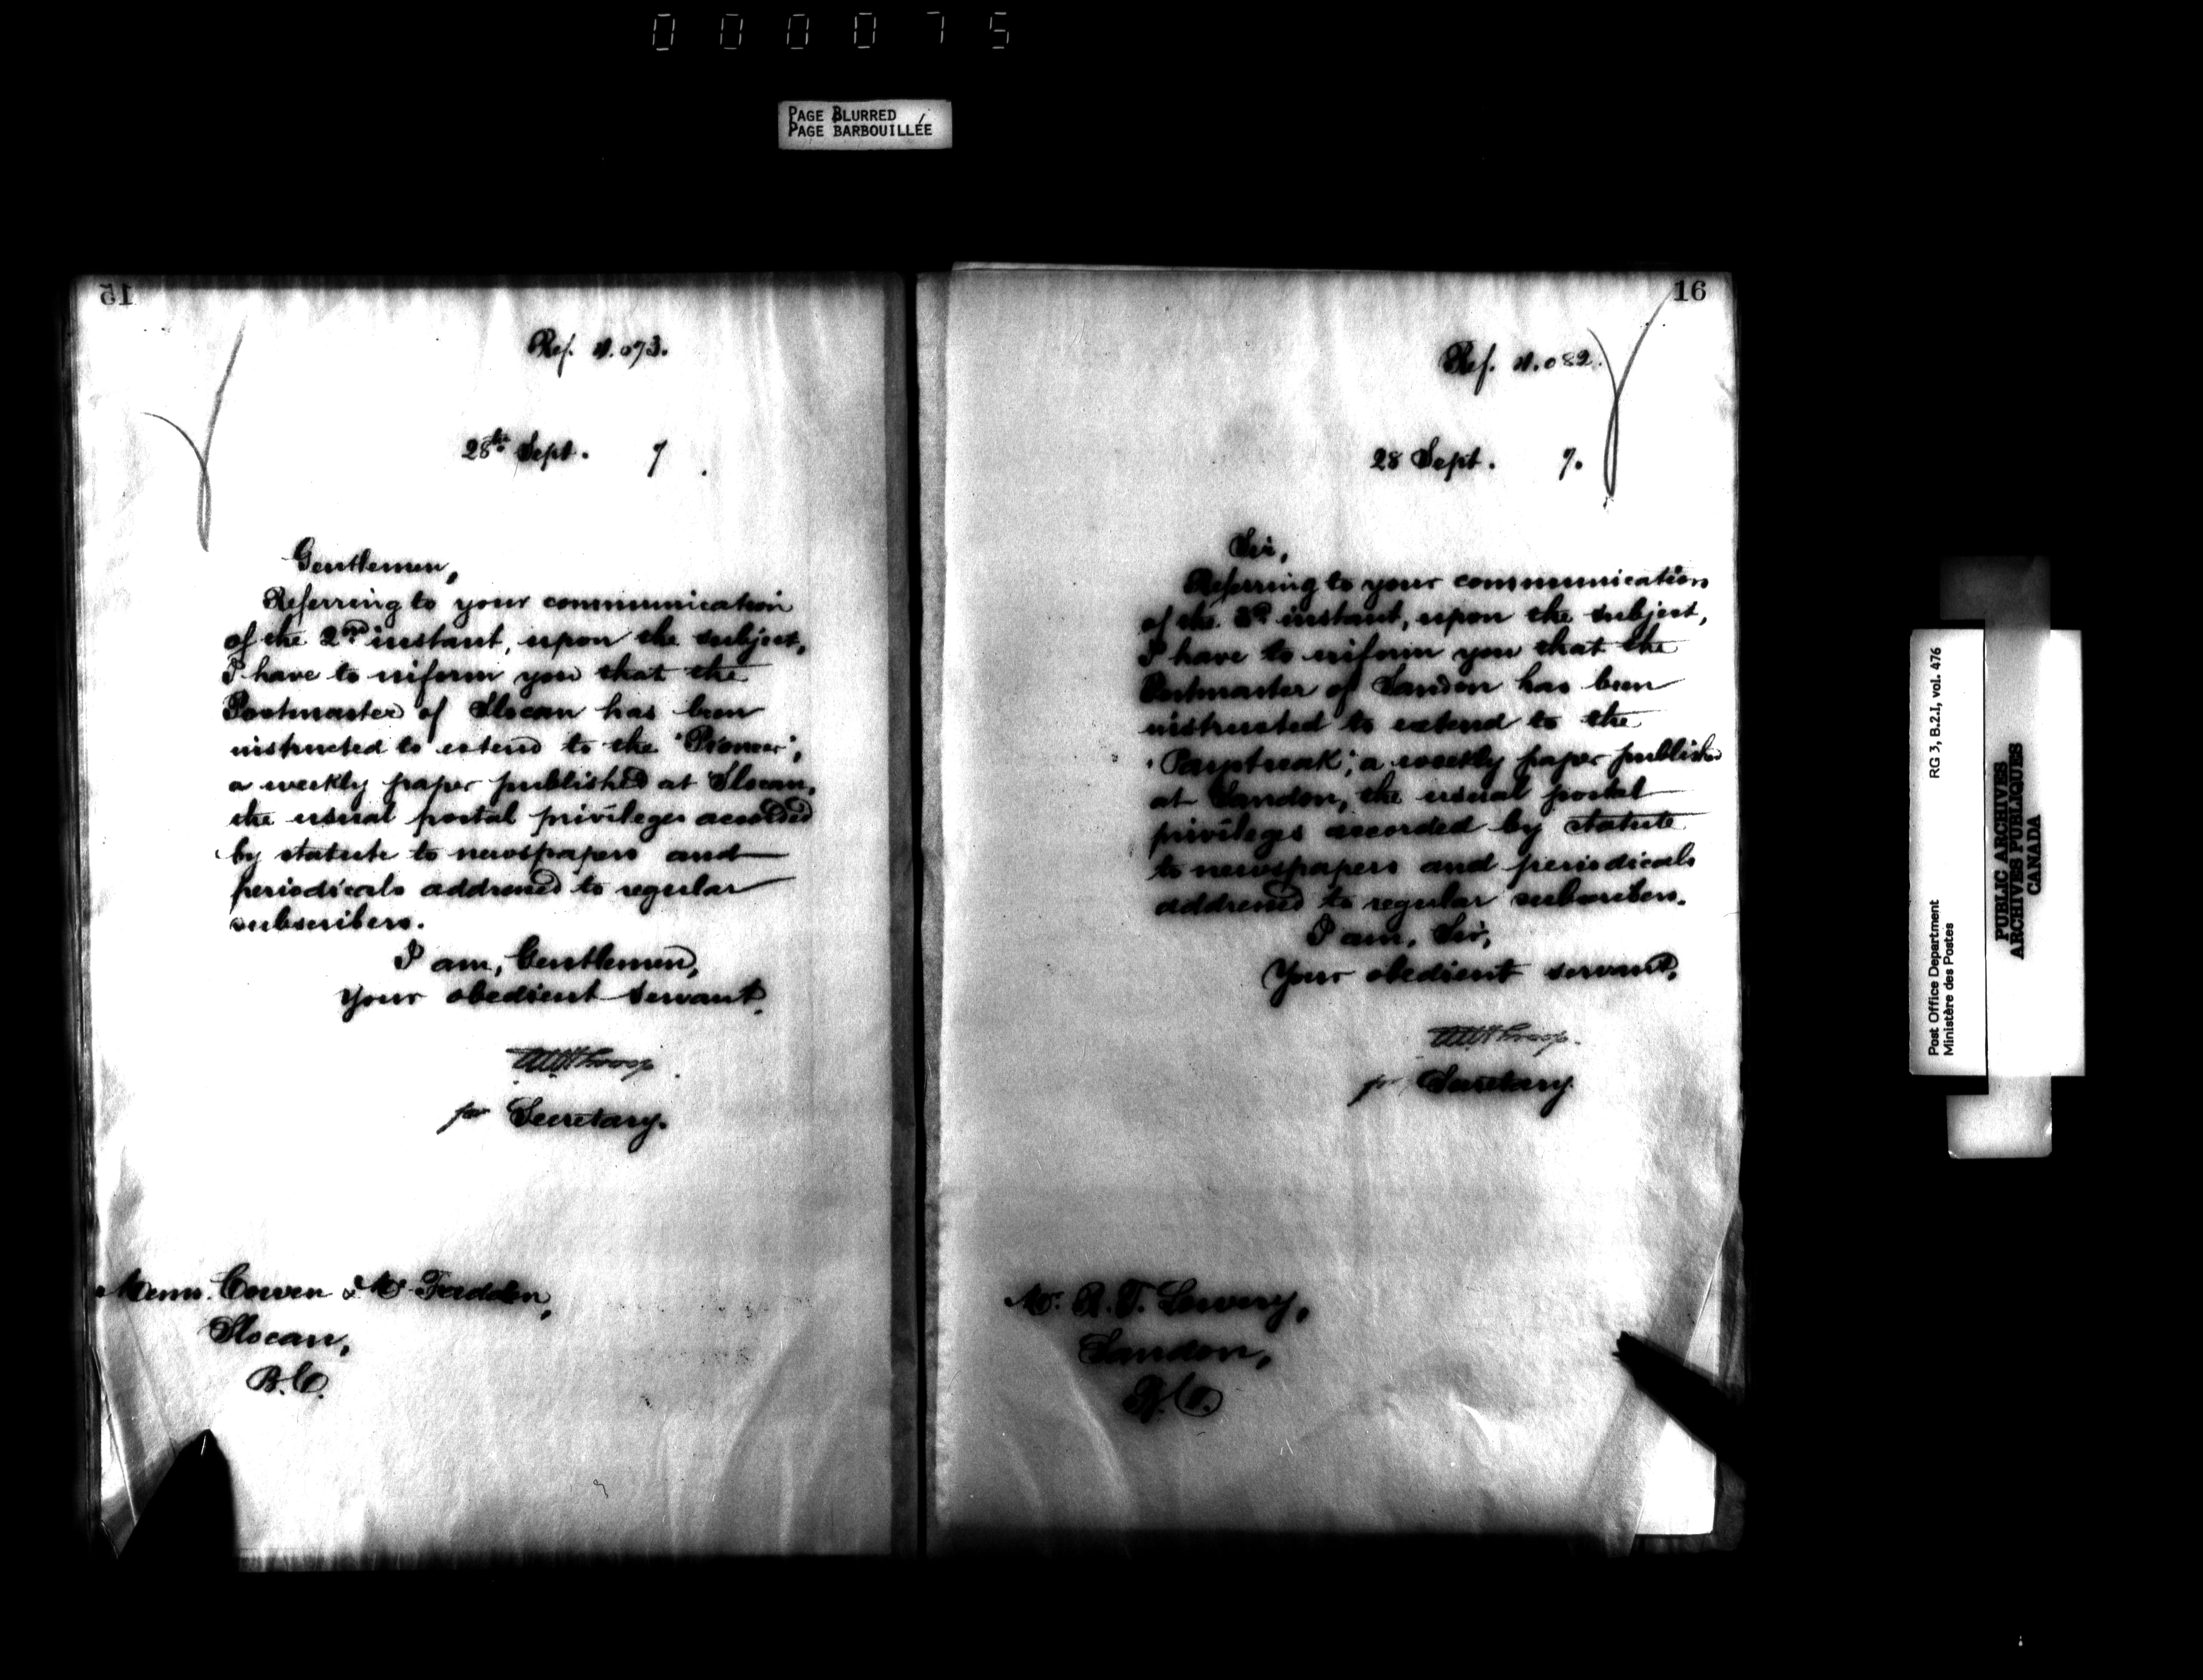 000075
PAGE BLURRED
PAGE BARBOUILLÉE
15
Ref. N.073.
28th Sept. 7.
Gentlemen,
Referring to your communication
of the 2nd instant, upon the subject,
I have to inform you that the
Postmaster of Slocan has been
instructed to extend to the "Pioneer",
a weekly paper published at Slocan,
the usual postal privileges accorded
by statute to newspapers and
periodicals addressed to regular
subscribers.
I am, Gentlemen,
Your obedient servant,
for Secretary.
Messrs. Corven & Mc
Slocan,
B.C.
16
Ref. N.082.
28 Sept. 7.
Sir,
Referring to your communication
of the 3rd instant, upon the subject,
I have to inform you that the
Postmaster of Sandon has been
instructed to extend to the
"Paystreak", a weekly paper published
at Sandon, the usual postal
privileges accorded by statute
to newspapers and periodicals
addressed to regular subscribers.
I am, Sir,
Your obedient servant,
for Secretary
Mr. R. T. Lowery,
Sandon,
B.C.
Post Office Department
Ministère des Postes
RG 3, B.2.I, vol. 476
PUBLIC ARCHIVES
ARCHIVES PUBLIQUES
CANADA